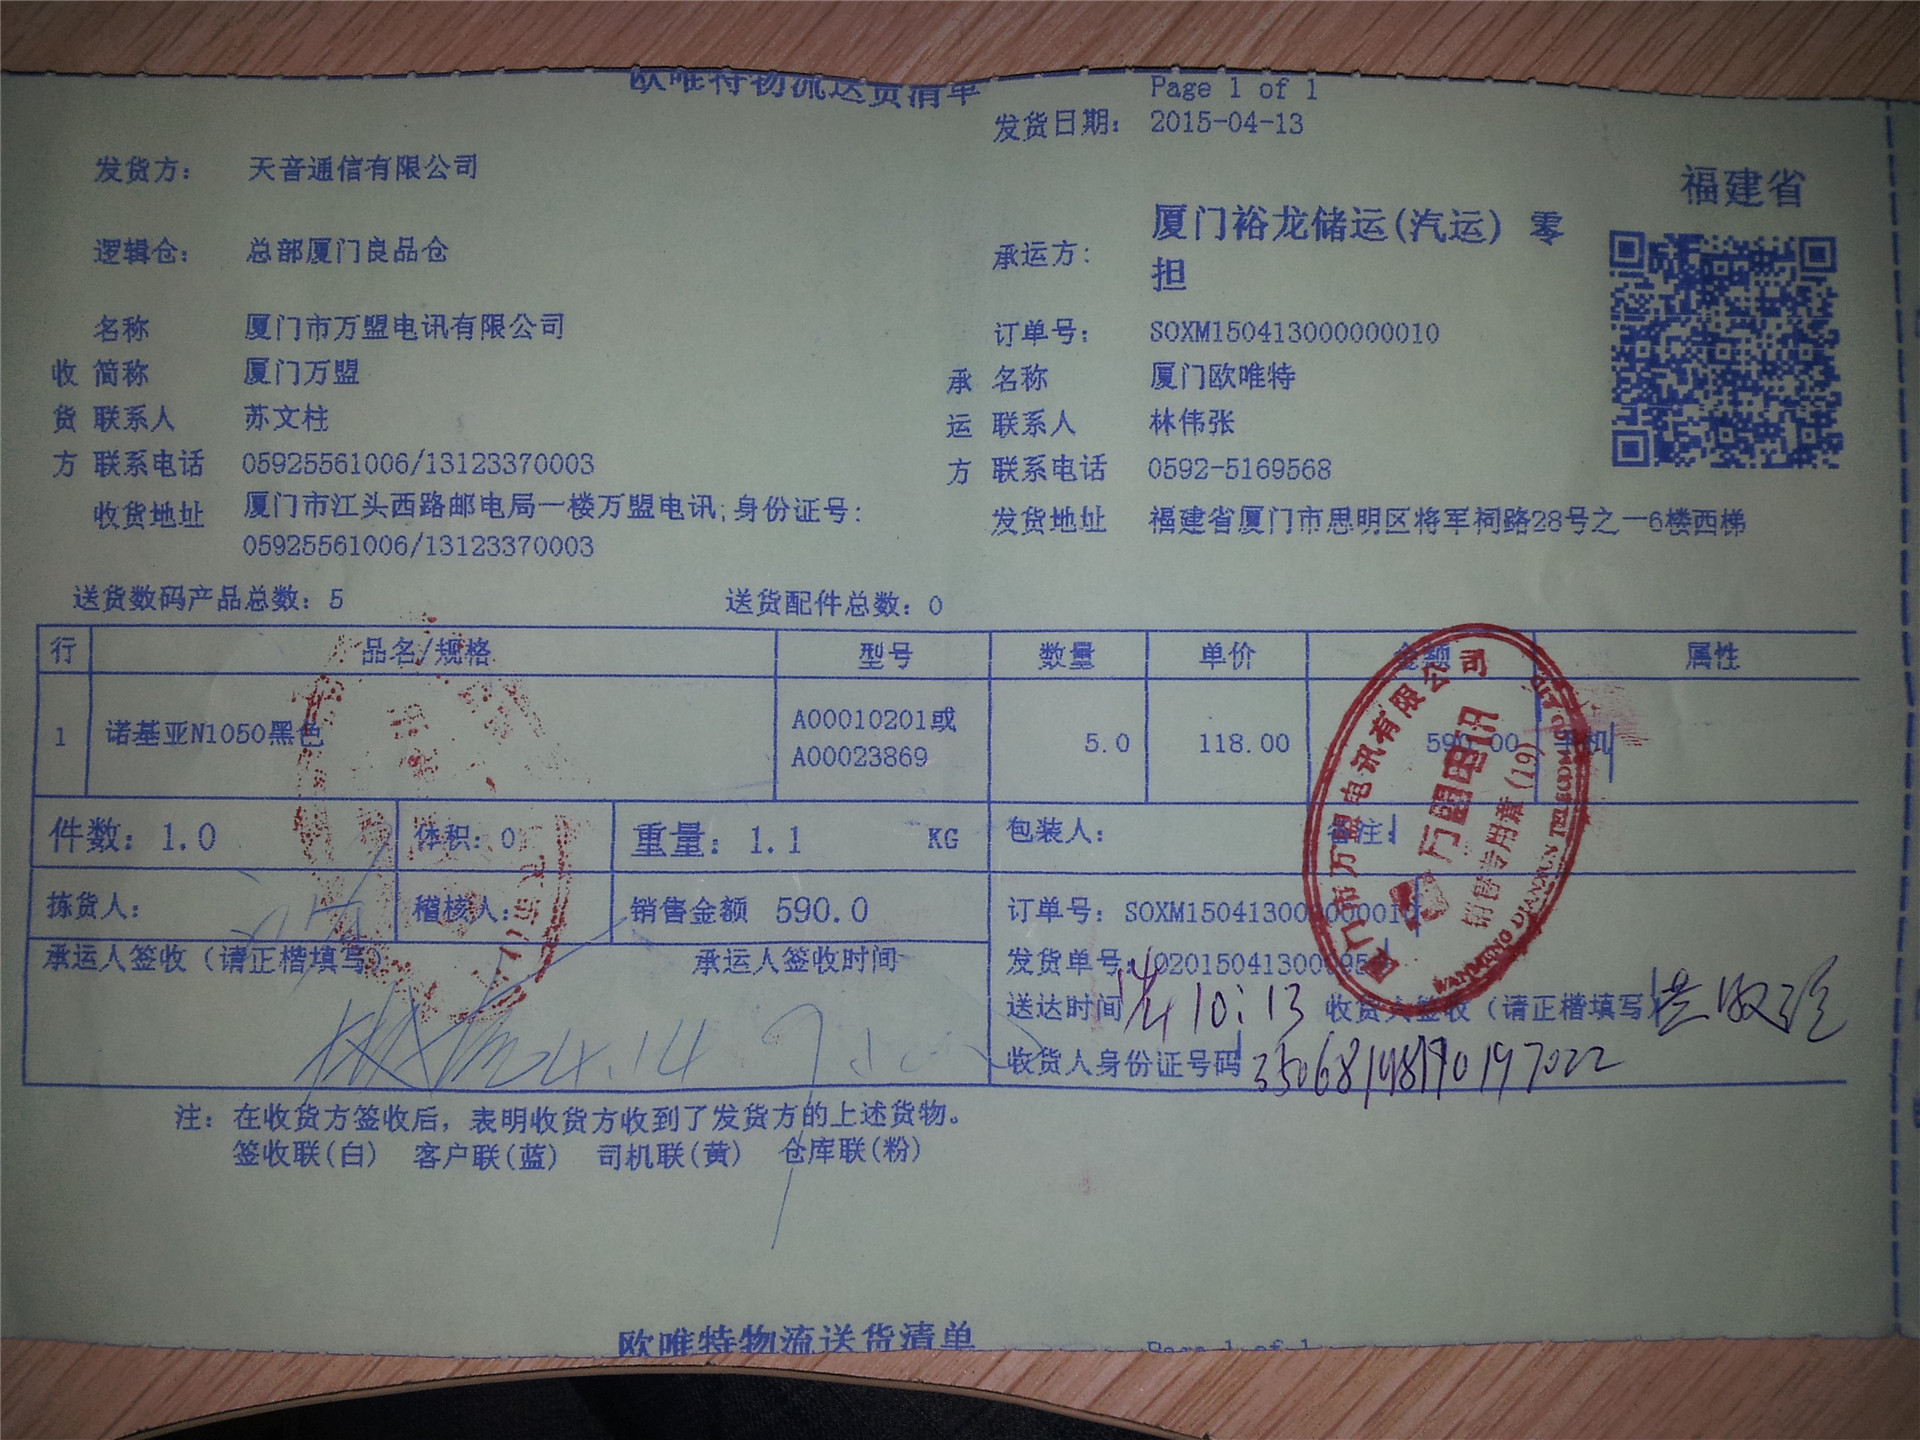 欧唯特物流送货清单
Page 1 of 1
发货日期： 2015-04-13
发货方： 天音通信有限公司
福建省
逻辑仓： 总部厦门良品仓
承运方： 厦门裕龙储运(汽运) 零担
名称 厦门市万盟电讯有限公司
订单号： SOXM150413000000010
收 简称 厦门万盟
承 名称 厦门欧唯特
货 联系人 苏文柱
运 联系人 林伟张
方 联系电话 05925561006/13123370003
方 联系电话 0592-5169568
收货地址 厦门市江头西路邮电局一楼万盟电讯;身份证号:
05925561006/13123370003
发货地址 福建省厦门市思明区将军祠路28号之一6楼西梯
送货数码产品总数：5 送货配件总数：0
行 品名/规格 型号 数量 单价 金额 属性
1 诺基亚N1050黑色 A00010201或A00023869 5.0 118.00 590.00 手机
件数：1.0 体积：0 重量：1.1 KG 包装人： 备注：
拣货人： 稽核人： 销售金额 590.0 订单号：SOXM150413000000010
承运人签收（请正楷填写） 承运人签收时间
发货单号：
送达时间 10:13 收货人签收（请正楷填写）
收货人身份证号码
4.14
厦门市万盟电讯有限公司
万盟电讯
销售专用章(19)
注：在收货方签收后，表明收货方收到了发货方的上述货物。
签收联(白) 客户联(蓝) 司机联(黄) 仓库联(粉)
欧唯特物流送货清单
Page 1 of 1